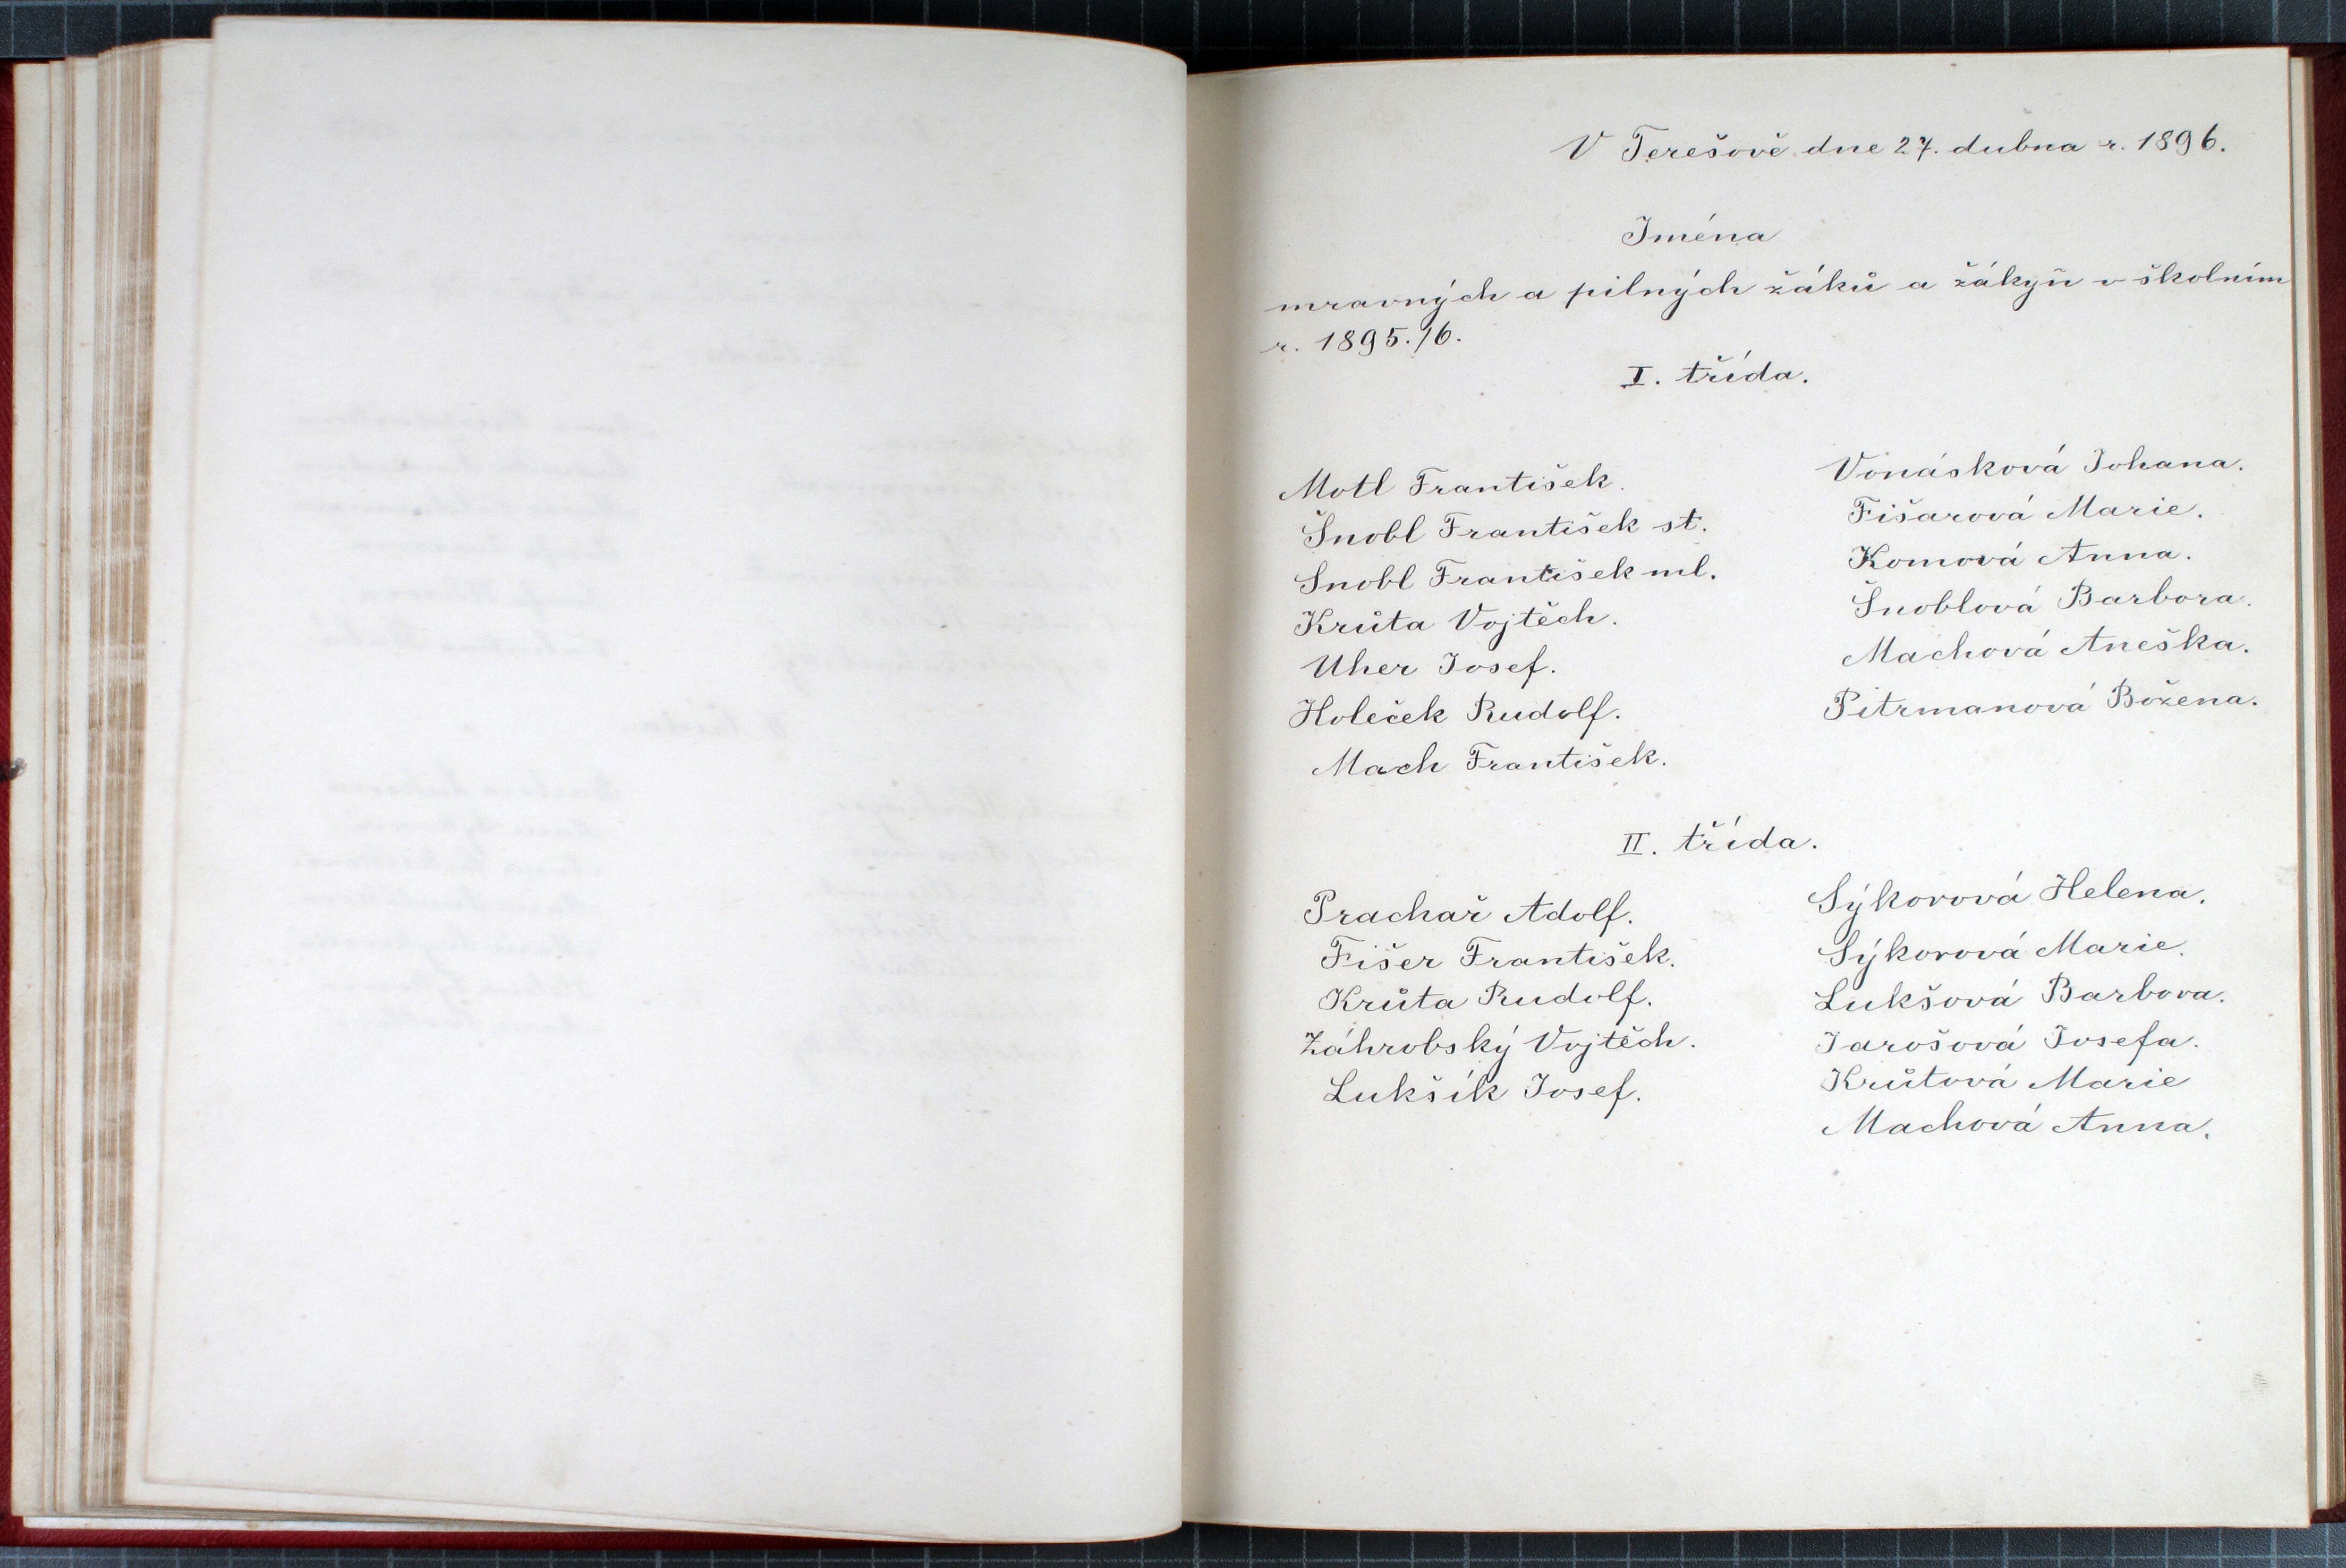 V Terešově dne 27. dubna r. 1896.
Jména
mravných a pilných žáků a žákyň v školním
r. 1895./6.
I. třída.
Motl František.
Šnobl František st.
Šnobl František ml.
Krůta Vojtěch.
Uher Josef.
Holeček Rudolf.
Mach František.
Vonásková Johana.
Fišarová Marie.
Komová Anna.
Šnoblová Barbora.
Machová Aneška.
Pitrmanová Božena.
II. třída.
Prachař Adolf.
Fišer František.
Krůta Rudolf.
Záhrobský Vojtěch.
Lukšík Josef.
Sýkorová Helena.
Sýkorová Marie.
Lukšová Barbora.
Jarošová Josefa.
Krůtová Marie
Machová Anna.